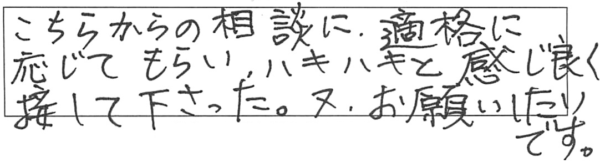 こちらからの相談に、適格に
応じてもらい、ハキハキと感じ良く
接して下さった。又、お願いしたい
です。